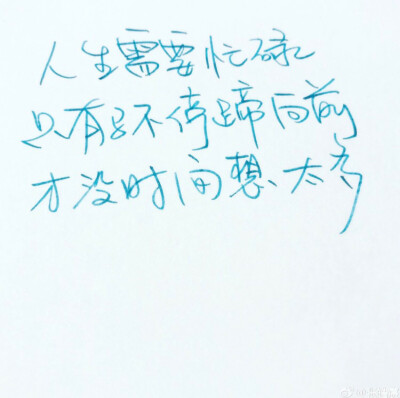 人生需要忙碌
只有马不停蹄向前
才没时间想太多